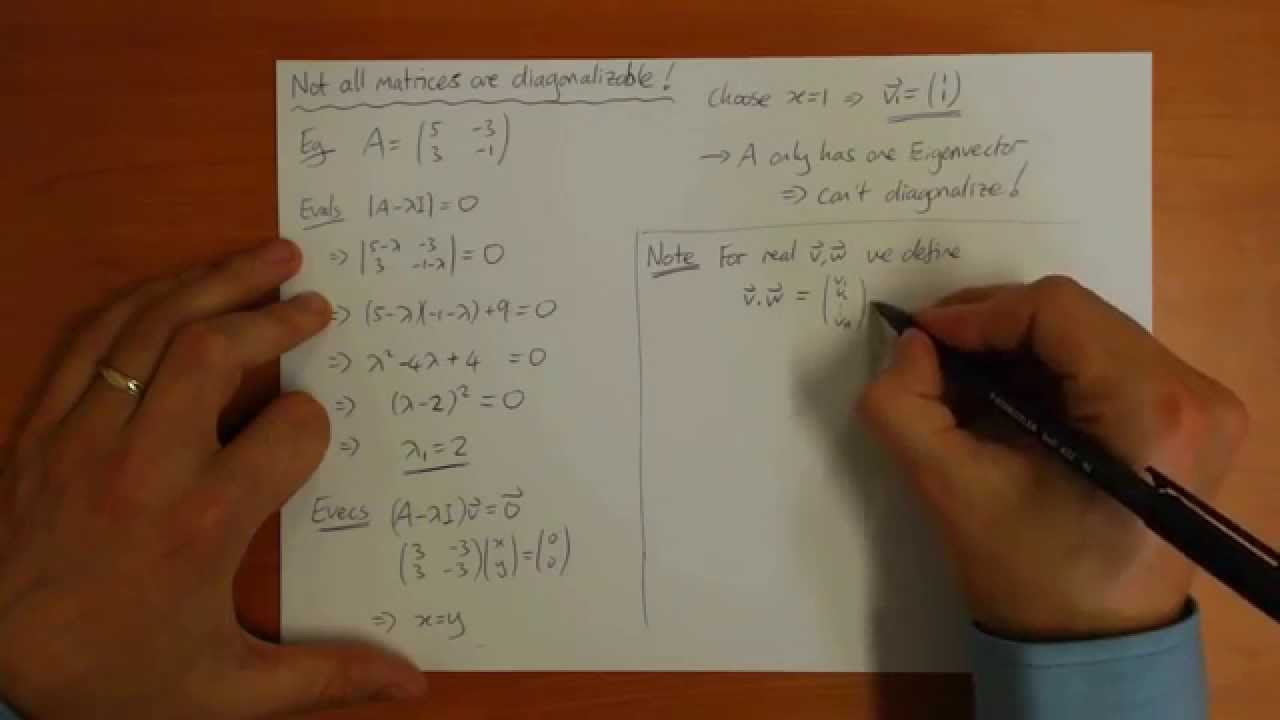 Not all matrices are diagonalizable!
Eg A = (5 -3
3 -1)
Evals |A-λI| = 0
⇒ |5-λ -3
3 -1-λ| = 0
⇒ (5-λ)(-1-λ)+9 = 0
⇒ λ²-4λ+4 = 0
⇒ (λ-2)² = 0
⇒ λ₁ = 2
Evecs (A-λI)v⃗ = 0⃗
(3 -3
3 -3)(x
y) = (0
0)
⇒ x=y
Choose x=1 ⇒ v⃗₁ = (1
1)
→ A only has one Eigenvector
⇒ can't diagonalize!
Note For real v⃗, w⃗ we define
v⃗.w⃗ = (v₁
⋮
vₙ)
STAEDTLER